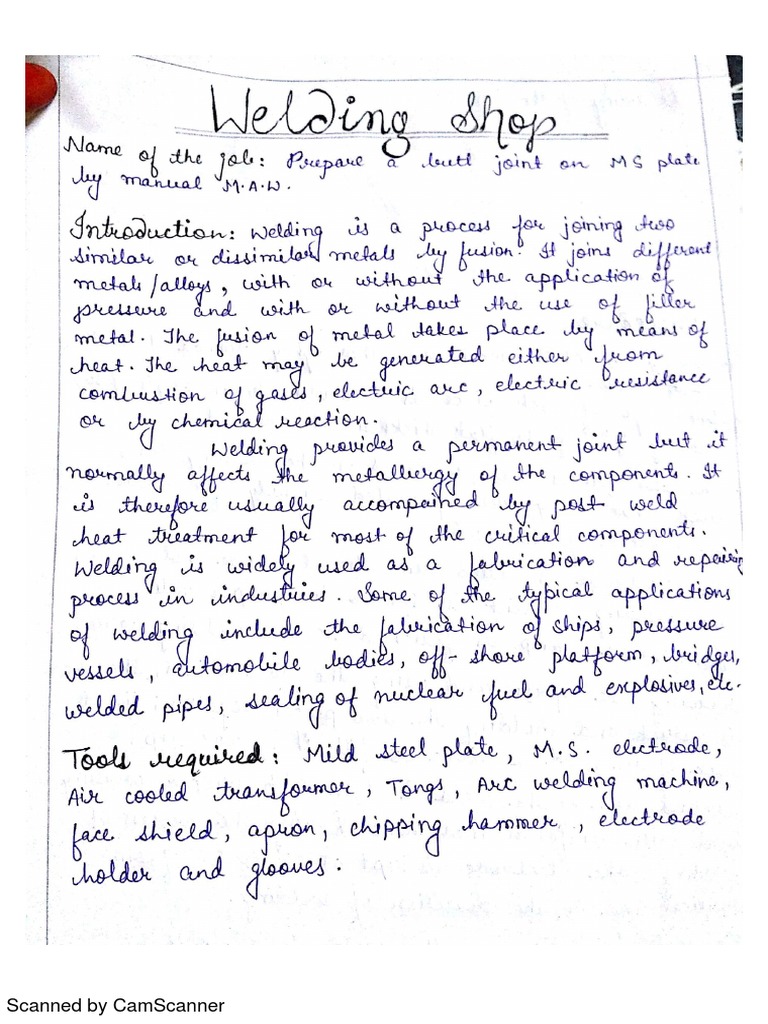 Welding Shop
Name of the job: Prepare a butt joint on MS plate
by manual M.A.W.
Introduction: Welding is a process for joining two
similar or dissimilar metals by fusion. It joins different
metals/alloys, with or without the application of
pressure and with or without the use of filler
metal. The fusion of metal takes place by means of
heat. The heat may be generated either from
combustion of gases, electric arc, electric resistance
or by chemical reaction.
Welding provides a permanent joint but it
normally affects the metallurgy of the components. It
is therefore usually accompained by post weld
heat treatment for most of the critical components.
Welding is widely used as a fabrication and repairing
process in industries. Some of the typical applications
of welding include the fabrication of ships, pressure
vessels, automobile bodies, off-shore platform, bridges,
welded pipes, sealing of nuclear fuel and explosives, etc.
Tools required: Mild steel plate, M.S. electrode,
Air cooled transformer, Tongs, Arc welding machine,
face shield, apron, chipping hammer, electrode
holder and glooves.
Scanned by CamScanner